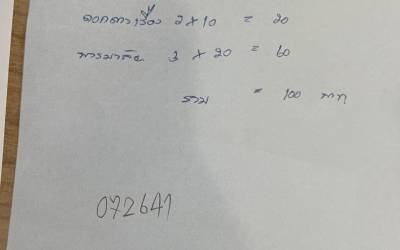 ดอกดาวเรือง 2 × 10 = 20
พวงมาลัย 3 × 20 = 60
รวม = 100 บาท
072641